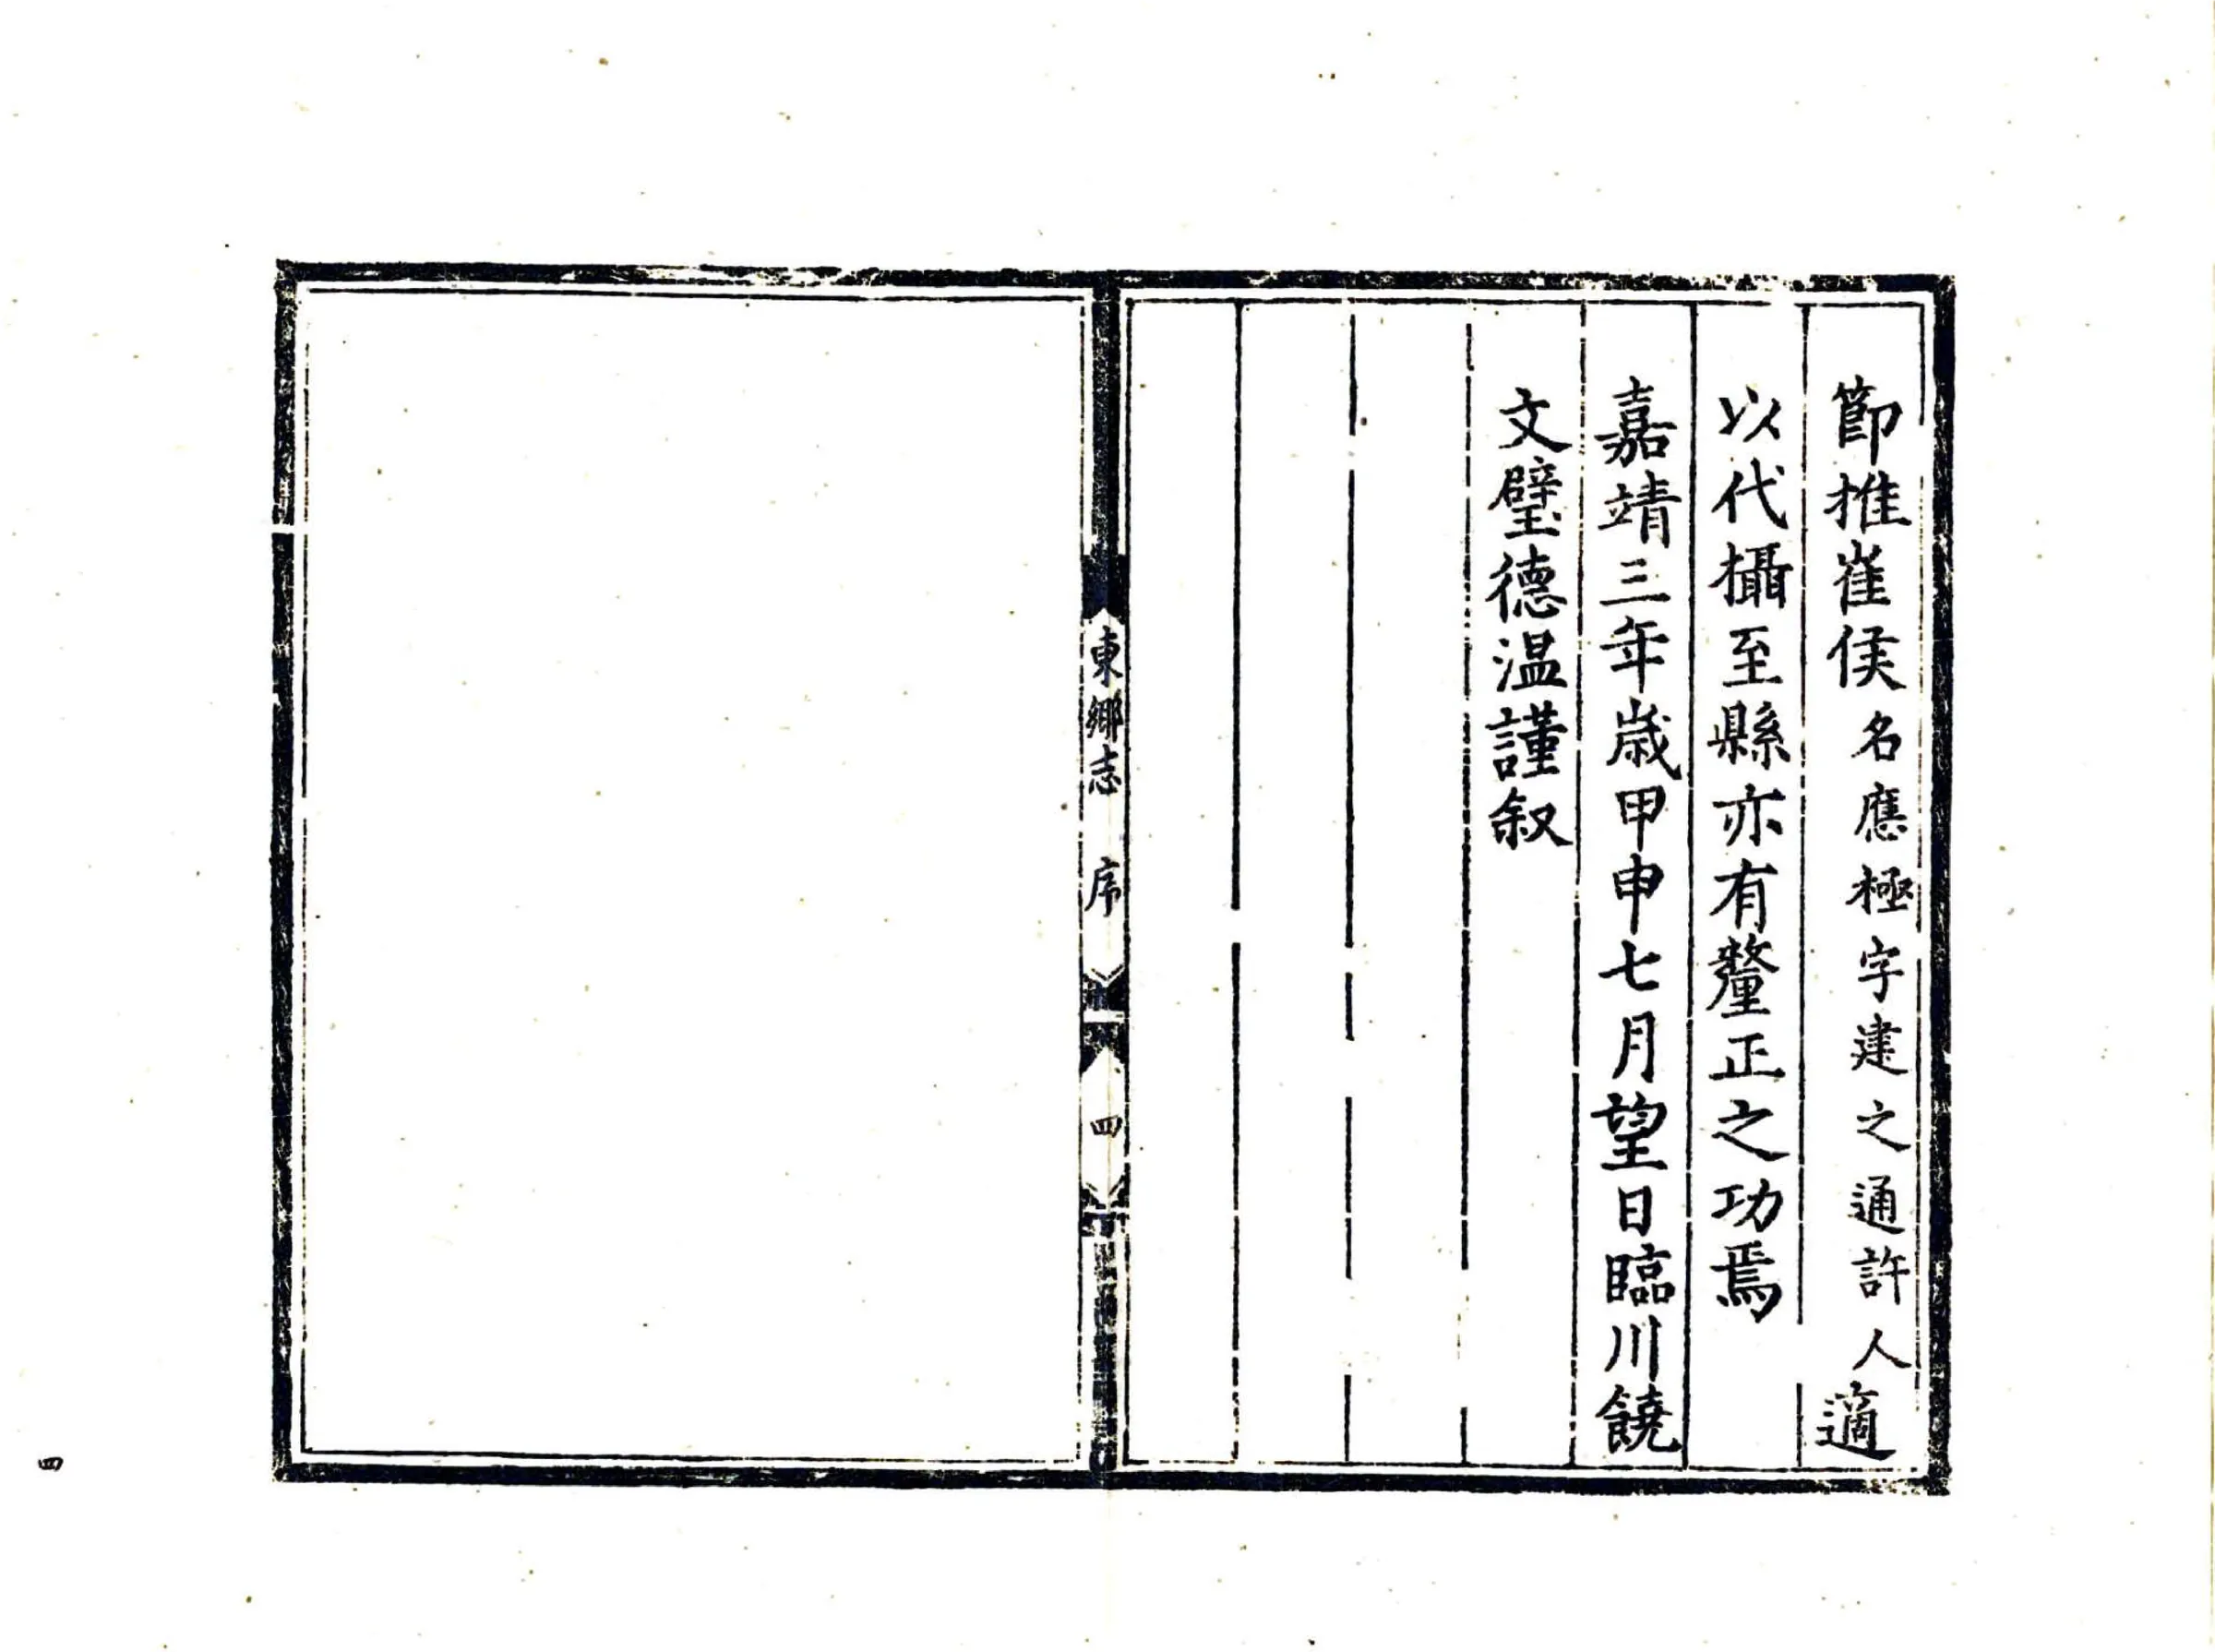 節推崔侯名應極字建之通許人適
以代攝至縣亦有釐正之功焉
嘉靖三年歲甲申七月望日臨川饒
文璧德温謹叙
東鄉志 序 四
四